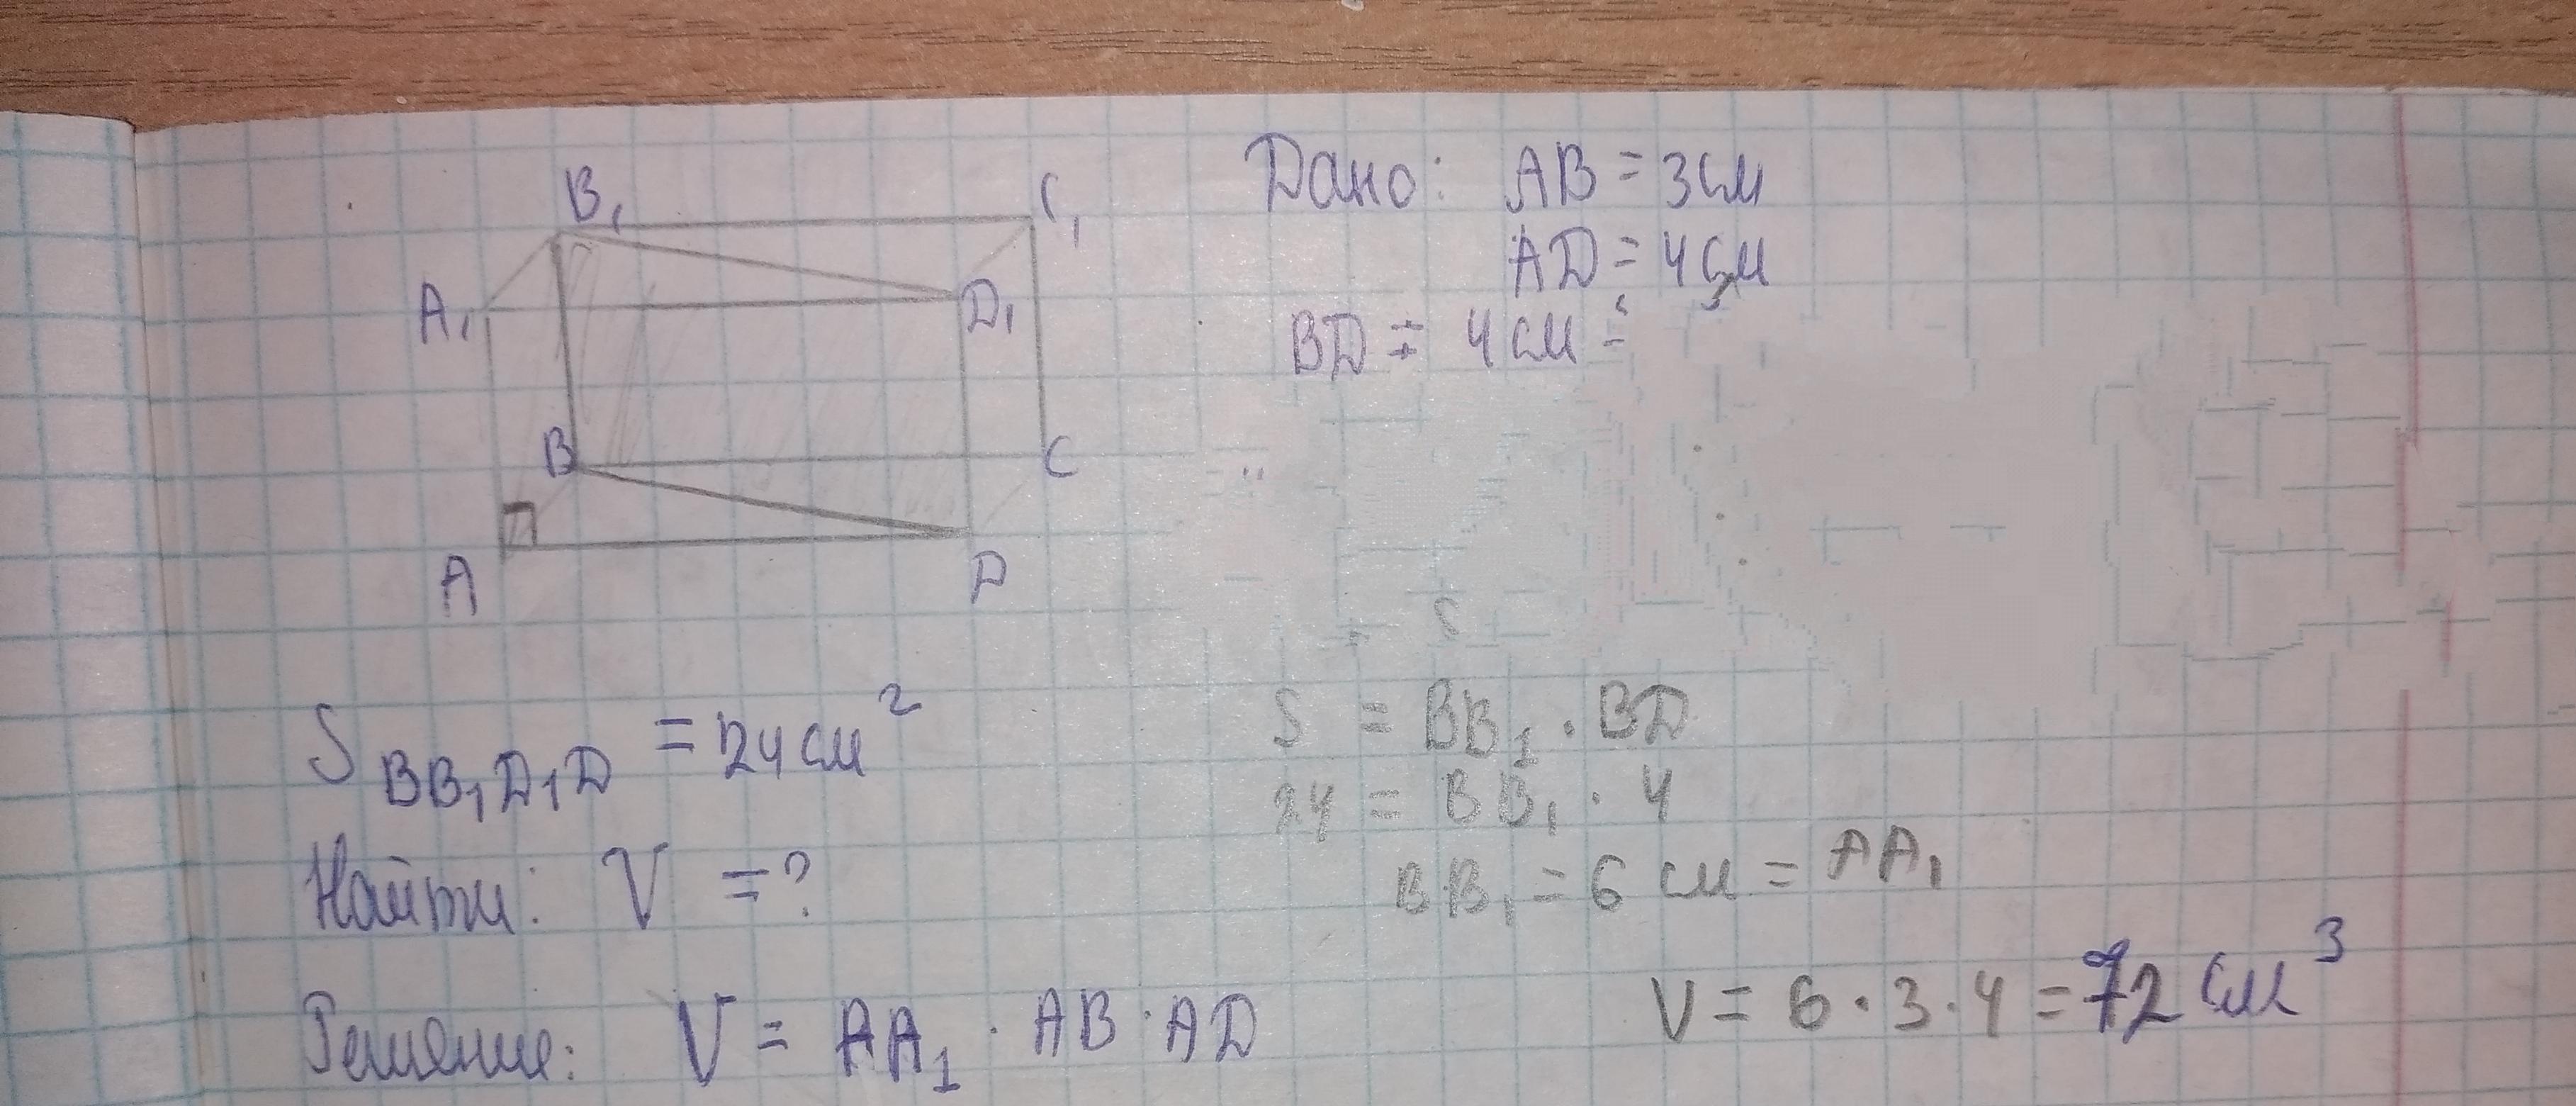 B₁ C₁
A₁ D₁
B C
A D
Дано: AB = 3 см
AD = 4 см
BD = 4 см =
S BB₁D₁D = 24 см²
Найти: V = ?
Решение: V = AA₁ · AB · AD
S
S = BB₁ · BD
24 = BB₁ · 4
BB₁ = 6 см = AA₁
V = 6 · 3 · 4 = 72 см³